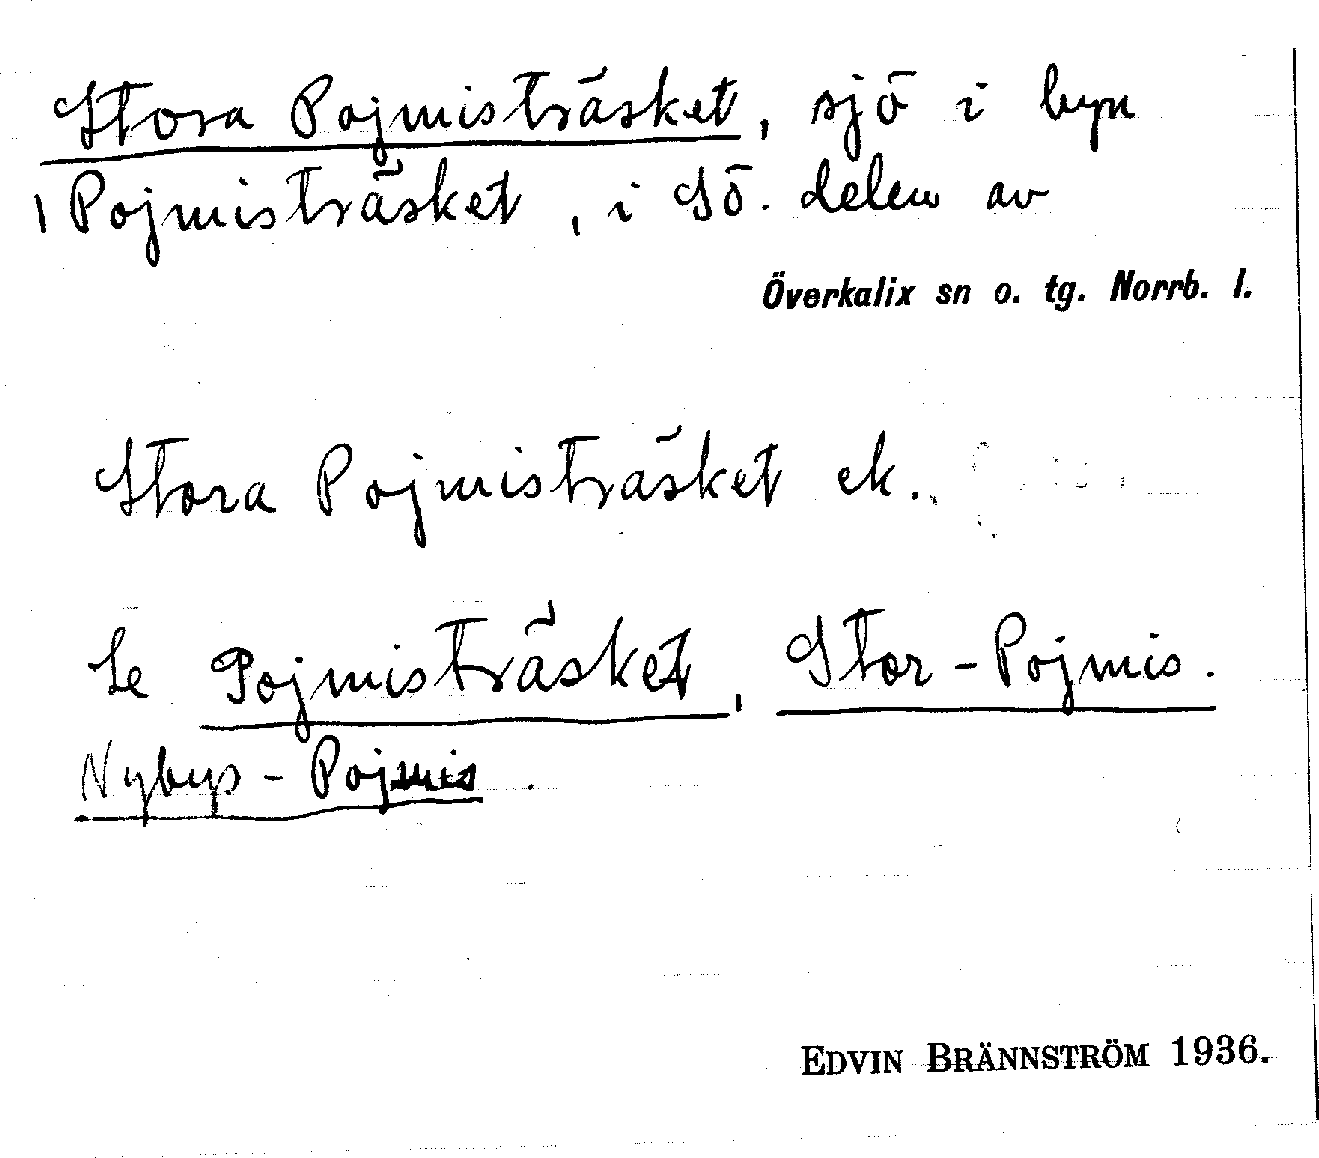 Stora Pojmisträsket, sjö i byn
Pojmisträsket, i SÖ. delen av
Överkalix sn o. tg. Norrb. l.
Stora Pojmisträsket ek.
Se Pojmisträsket, Stor-Pojmis.
Nybyp-Pojmis.
EDVIN BRÄNNSTRÖM 1936.